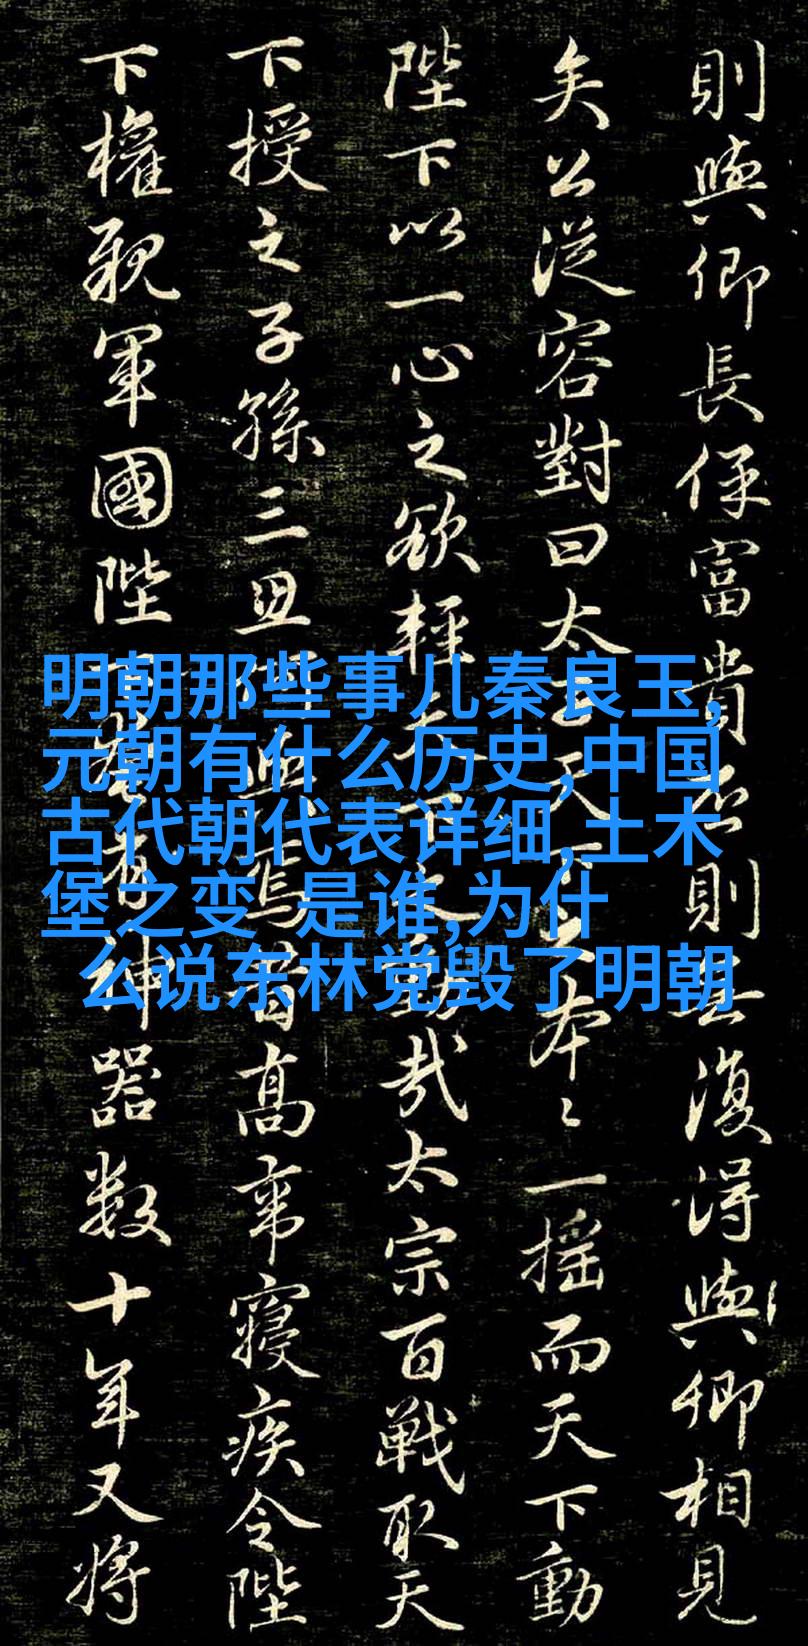 則與卿長保富貴則無復得與卿相見
矣公從容對曰太天本〻一搖而天下動
陛下以一心之欲輕動哉太宗百戰取天
下授之子孫三世陛焉昔高帝寢疾令陛
下權親軍國陛神器數十年又將
明朝那些事儿秦良玉,
元朝有什么历史,中国
古代朝代表详细,土木
堡之变 是谁,为什
么说东林党毁了明朝